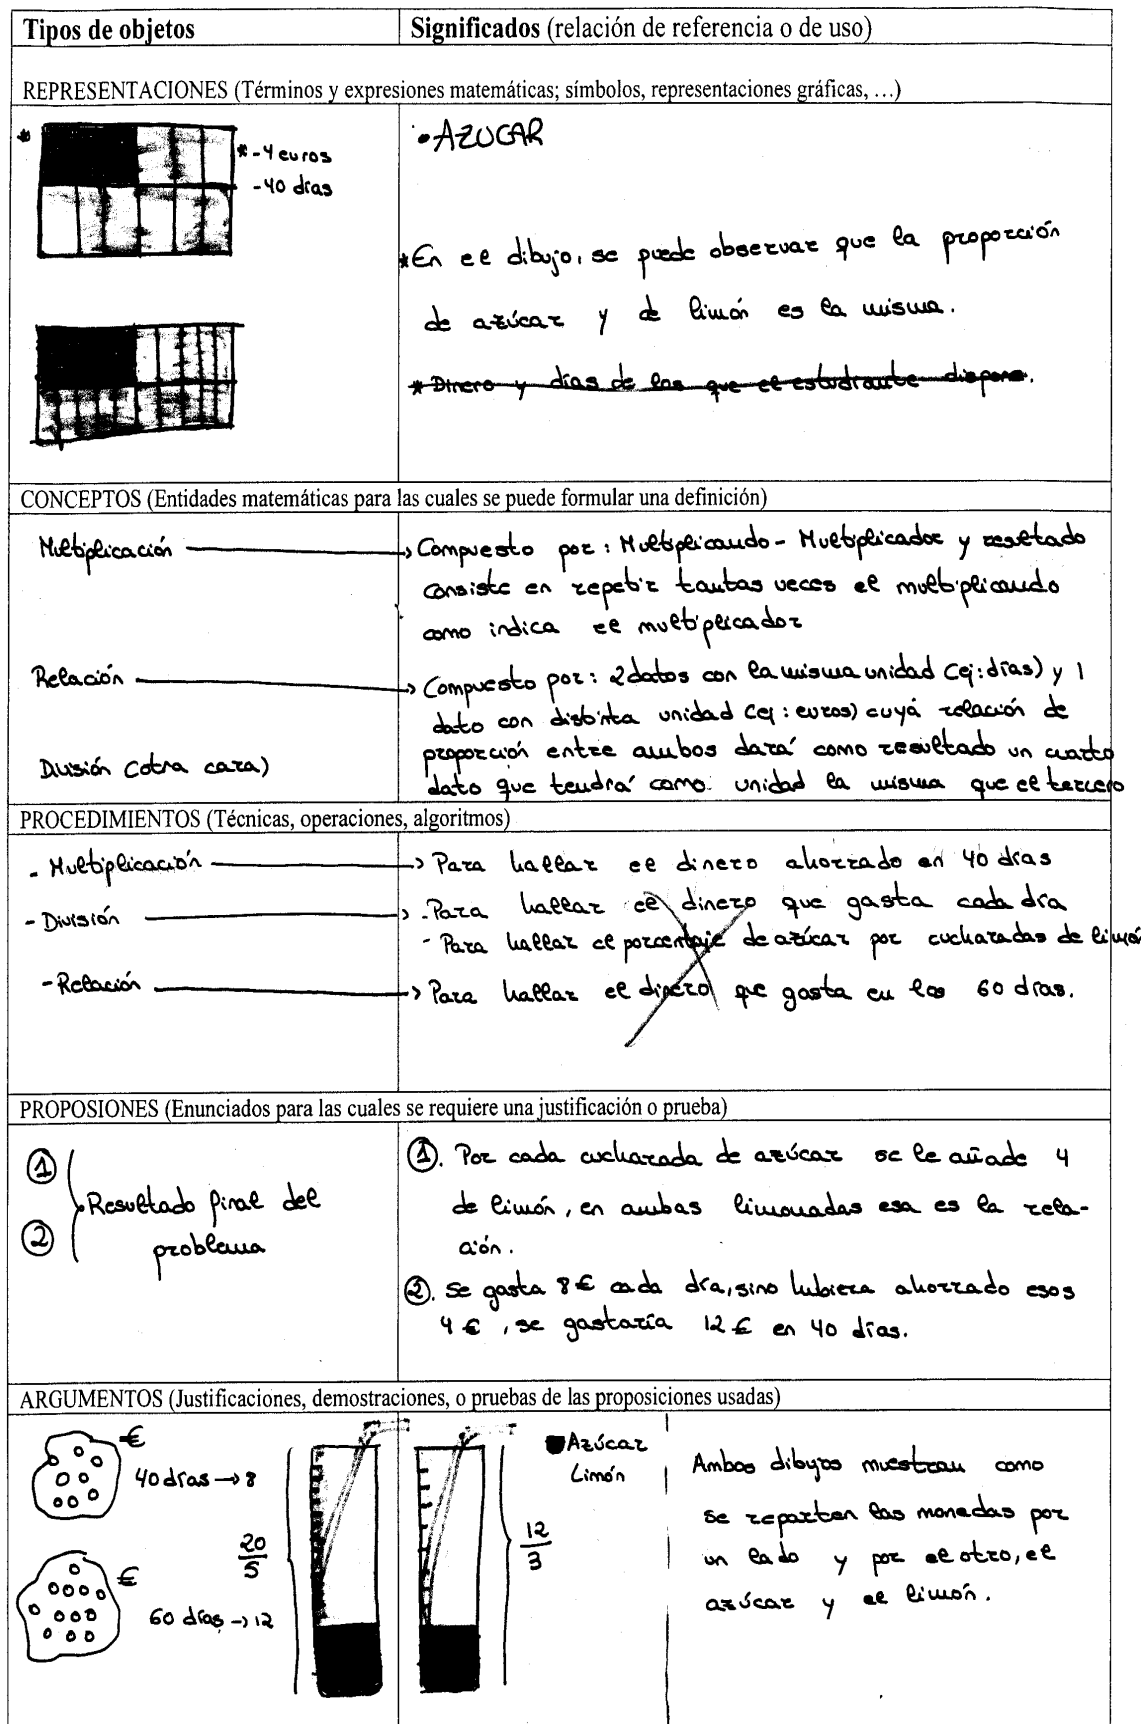 Tipos de objetos
Significados (relación de referencia o de uso)
REPRESENTACIONES (Términos y expresiones matemáticas; símbolos, representaciones gráficas, …)
* -4 euros
-40 días
• AZUCAR
*En el dibujo, se puede observar que la proporción
de azúcar y de limón es la misma.
* Dinero y días de los que el estudiante dispone.
CONCEPTOS (Entidades matemáticas para las cuales se puede formular una definición)
Multiplicación
Compuesto por: Multiplicando - Multiplicador y resultado
consiste en repetir tantas veces el multiplicando
como indica el multiplicador
Relación
Compuesto por: 2 datos con la misma unidad (ej: días) y 1
dato con distinta unidad (ej: euros) cuya relación de
proporción entre ambos dará como resultado un cuarto
dato que tendrá como unidad la misma que el tercero
División (otra cara)
PROCEDIMIENTOS (Técnicas, operaciones, algoritmos)
- Multiplicación
Para hallar el dinero ahorrado en 40 días
- División
- Para hallar el dinero que gasta cada día
- Para hallar el porcentaje de azúcar por cucharadas de limón
- Relación
Para hallar el dinero que gasta en los 60 días.
PROPOSIONES (Enunciados para las cuales se requiere una justificación o prueba)
1
2
Resultado final del
problema
1. Por cada cucharada de azúcar se le añade 4
de limón, en ambas limonadas esa es la rela-
ción.
2. se gasta 8€ cada día, sino hubiera ahorrado esos
4€, se gastaría 12€ en 40 días.
ARGUMENTOS (Justificaciones, demostraciones, o pruebas de las proposiciones usadas)
€
40 días → 8
€
60 días → 12
20
5
12
3
Azúcar
Limón
Ambos dibujos muestran como
se reparten las monedas por
un lado y por el otro, el
azúcar y el limón.